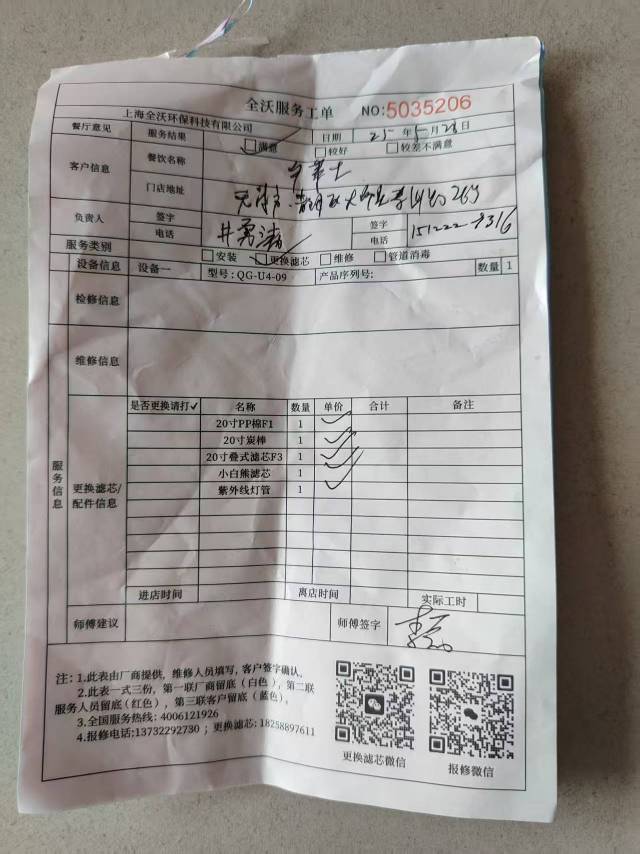 全沃服务工单 NO:5035206
上海全沃环保科技有限公司
餐厅意见 服务结果 满意 日期 年 月 日
较好 较差不满意
客户信息 餐饮名称
门店地址
负责人 签字 签字
电话 电话
服务类别 安装 更换滤芯 维修 管道消毒
设备信息 设备一 型号: QG-U4-09 产品序列号: 数量 1
检修信息
维修信息
服务信息
更换滤芯/配件信息
是否更换请打✓ 名称 数量 单价 合计 备注
20寸PP棉F1 1 ✓
20寸炭棒 1 ✓
20寸叠式滤芯F3 1 ✓
小白熊滤芯 1 ✓
紫外线灯管 1 ✓
进店时间 离店时间 实际工时
师傅建议 师傅签字
注: 1.此表由厂商提供, 维修人员填写, 客户签字确认,
2.此表一式三份, 第一联厂商留底(白色), 第二联
服务人员留底(红色), 第三联客户留底(蓝色),
3.全国服务热线: 4006121926
4.报修电话:13732292730 ; 更换滤芯: 18258897611
更换滤芯微信 报修微信